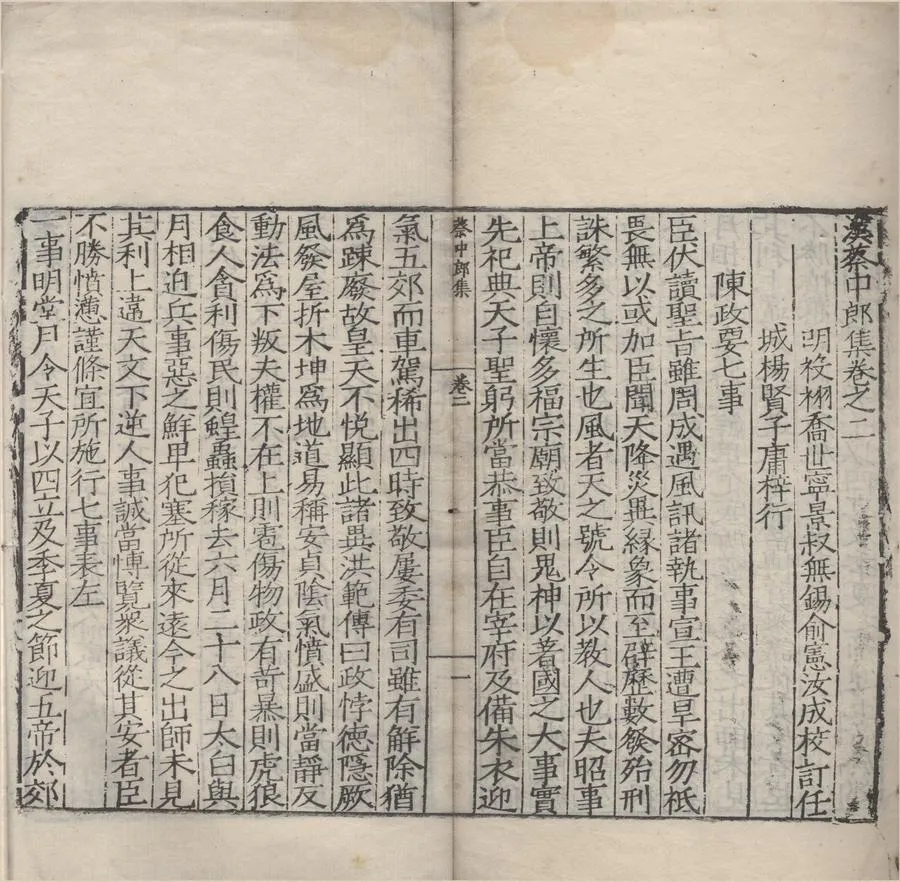 漢蔡中郎集卷之二
明祋栩喬世寧景叔無錫俞憲汝成校訂任
城楊賢子庸梓行
陳政要七事
臣伏讀聖旨雖周成遇風訊諸執事宣王遭旱密勿祗
畏無以或加臣聞天降災異緣象而至辟歷數發殆刑
誅繁多之所生也風者天之號令所以教人也夫昭事
上帝則自懷多福宗廟致敬則鬼神以著國之大事實
先祀典天子聖躬所當恭事臣自在宰府及備朱衣迎
蔡中郎集
卷二
一
氣五郊而車駕稀出四時致敬屢委有司雖有解除猶
為踈廢故皇天不悅顯此諸異洪範傳曰政悖德隱厥
風發屋折木坤為地道易稱安貞陰氣憤盛則當靜反
動法為下叛夫權不在上則雹傷物政有苛暴則虎狼
食人貪利傷民則蝗蟲損稼去六月二十八日太白與
月相迫兵事惡之鮮卑犯塞所從來遠今之出師未見
其利上違天文下逆人事誠當慱覽衆議從其安者臣
不勝憤懣謹條宜所施行七事表左
一事明堂月令天子以四立及季夏之節迎五帝於郊